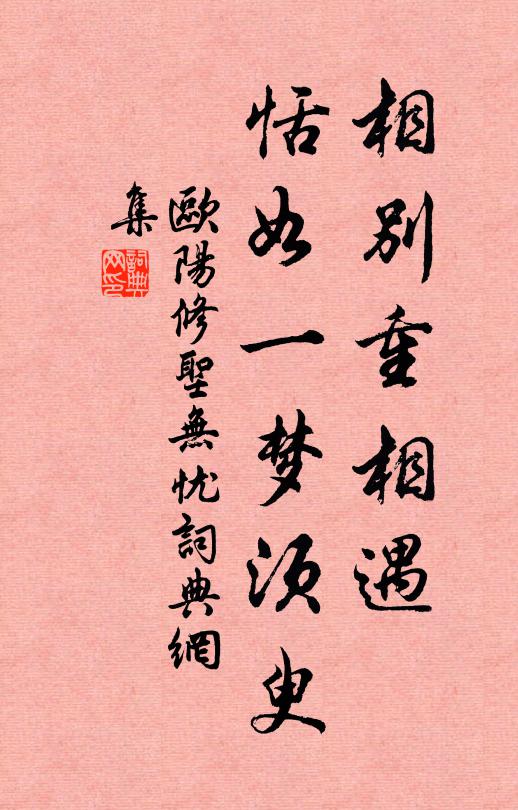 相别重相遇
恬如一梦須臾
歐陽修聖無忧詞典網
集
詞典网印